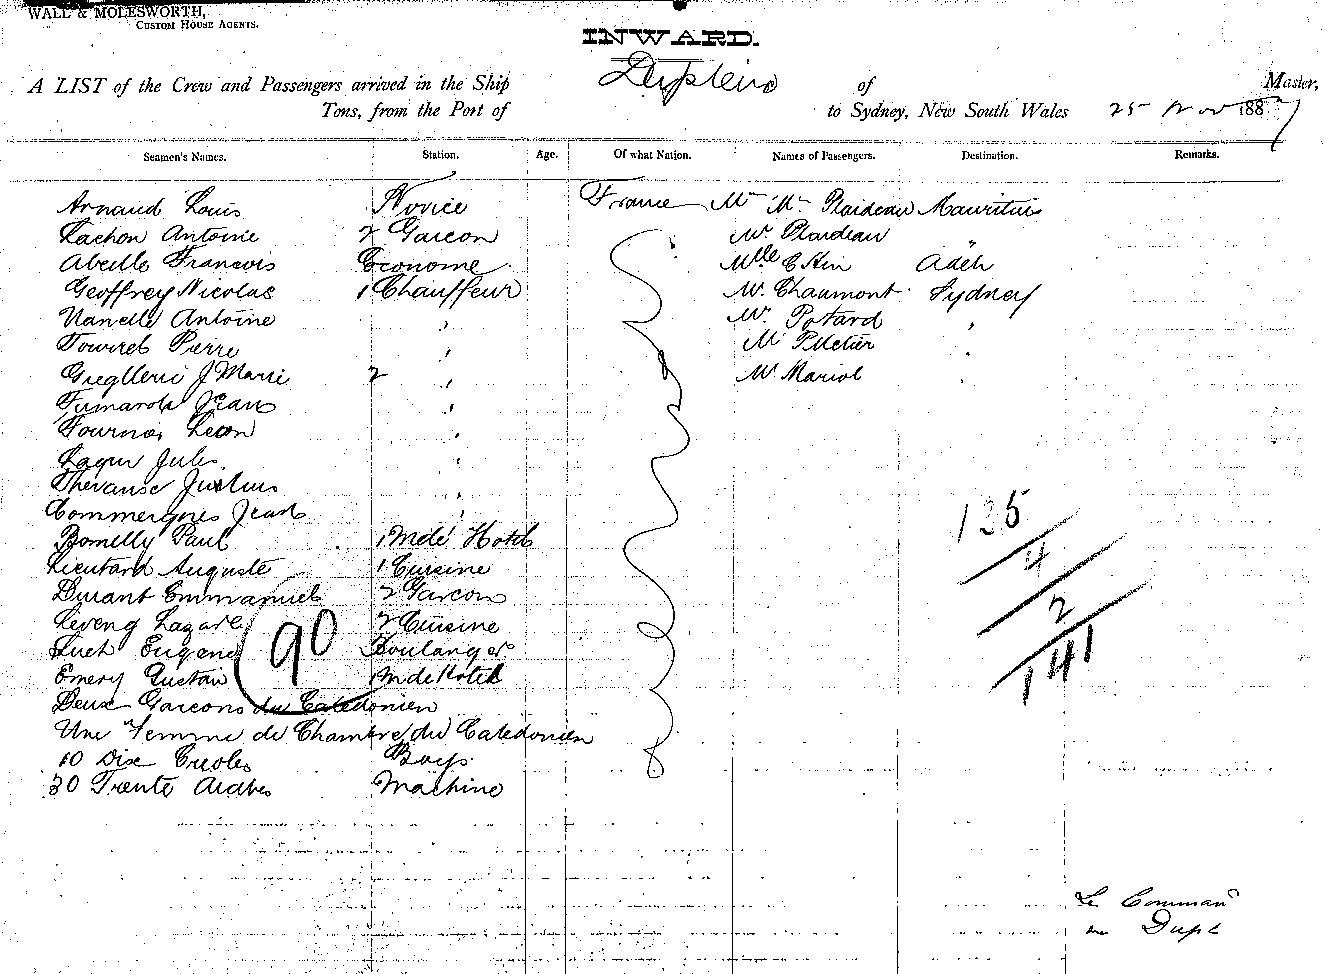 WALL & MOLESWORTH,
CUSTOM HOUSE AGENTS.
INWARD.
A LIST of the Crew and Passengers arrived in the Ship Dupleix of Master,
Tons, from the Port of to Sydney, New South Wales 25 Nov 1887
Seamen's Names. Station. Age. Of what Nation. Names of Passengers. Destination. Remarks.
Arnaud Louis Novice France Mr Plaideau Mauritius
Lachon Antoine 2 Garcon Mr Plaideau "
Abeille Francois Econome Mlle Aden
Geoffrey Nicolas 1 Chauffeur Mr Chaumont Sydney
Nanette Antoine " Mr Potard "
Pierre " Mr Peletier "
J Marie 2 " Mr Mariol "
Fumarola Jean "
Fournier Leon "
Jules "
Thevanse Justius "
Commergnes Jean "
Bomelly Paul 1 M de Hotel
Lieutard Auguste 1 Cuisine
Durant Emmanuel 2 Garcon
Lazare 2 Cuisine
Eugene Boulanger
Emery Gustav 1 M de Hotel
Deux Garcons du Caledonien
Une Femme de Chambre du Caledonien
10 Dix Creoles Boys
30 Trente Arabes Machine
90
135
4
2
141
Le Comman
Dupl